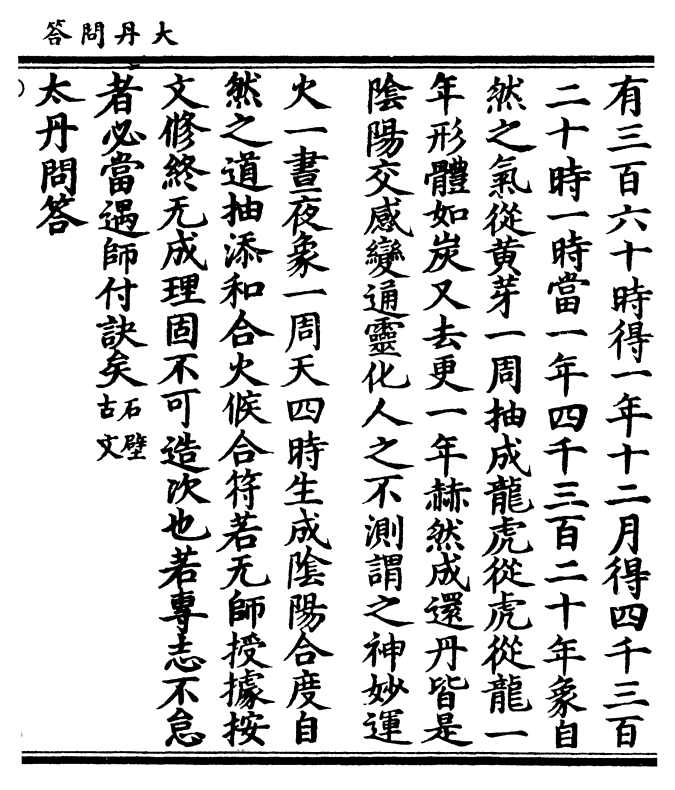 大丹問答
有三百六十時得一年十二月得四千三百
二十時一時當一年四千三百二十年象自
然之氣從黄芽一周抽成龍虎從虎從龍一
年形體如炭又去更一年赫然成還丹皆是
陰陽交感變通靈化人之不測謂之神妙運
火一晝夜象一周天四時生成陰陽合度自
然之道抽添和合火候合符若无師授據按
文修終无成理固不可造次也若專志不怠
者必當遇師付訣矣石壁古文
太丹問答